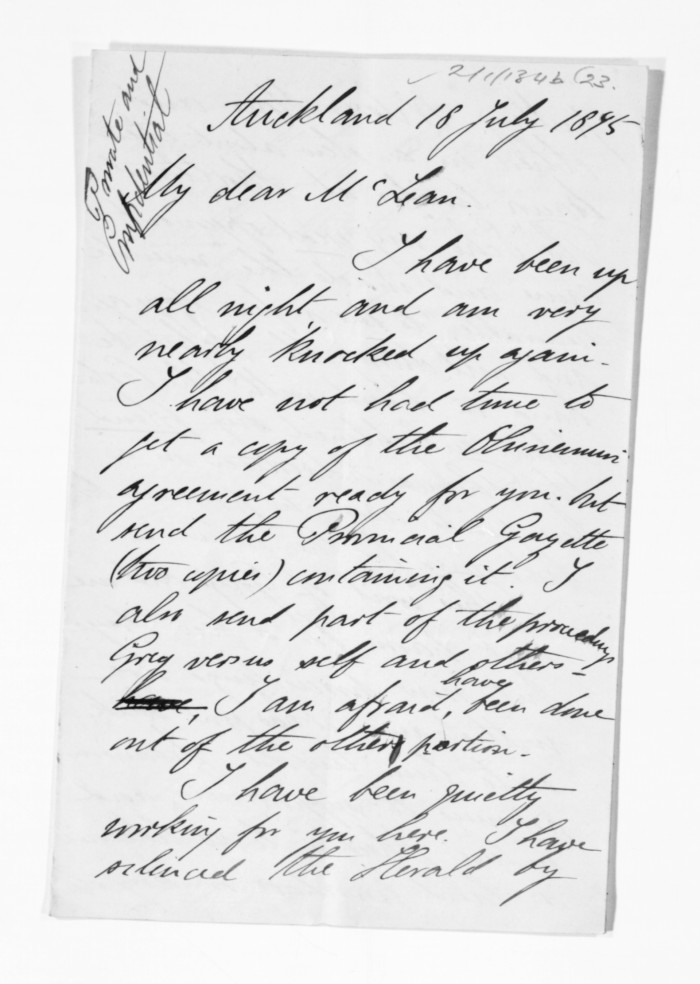 2/1/134b (23.
Private and
Confidential
Auckland 18 July 1875
My dear McLean.
I have been up
all night, and am very
nearly knocked up again.
I have not had time to
get a copy of the Ohinemuri
agreement ready for you. but
send the Provincial Gazette
(two copies) containing it. I
also send part of the proceedings
Grey versus self and others -
have, I am afraid, have been done
out of the other portion.
I have been quietly
working for you here. I have
silenced the Herald by